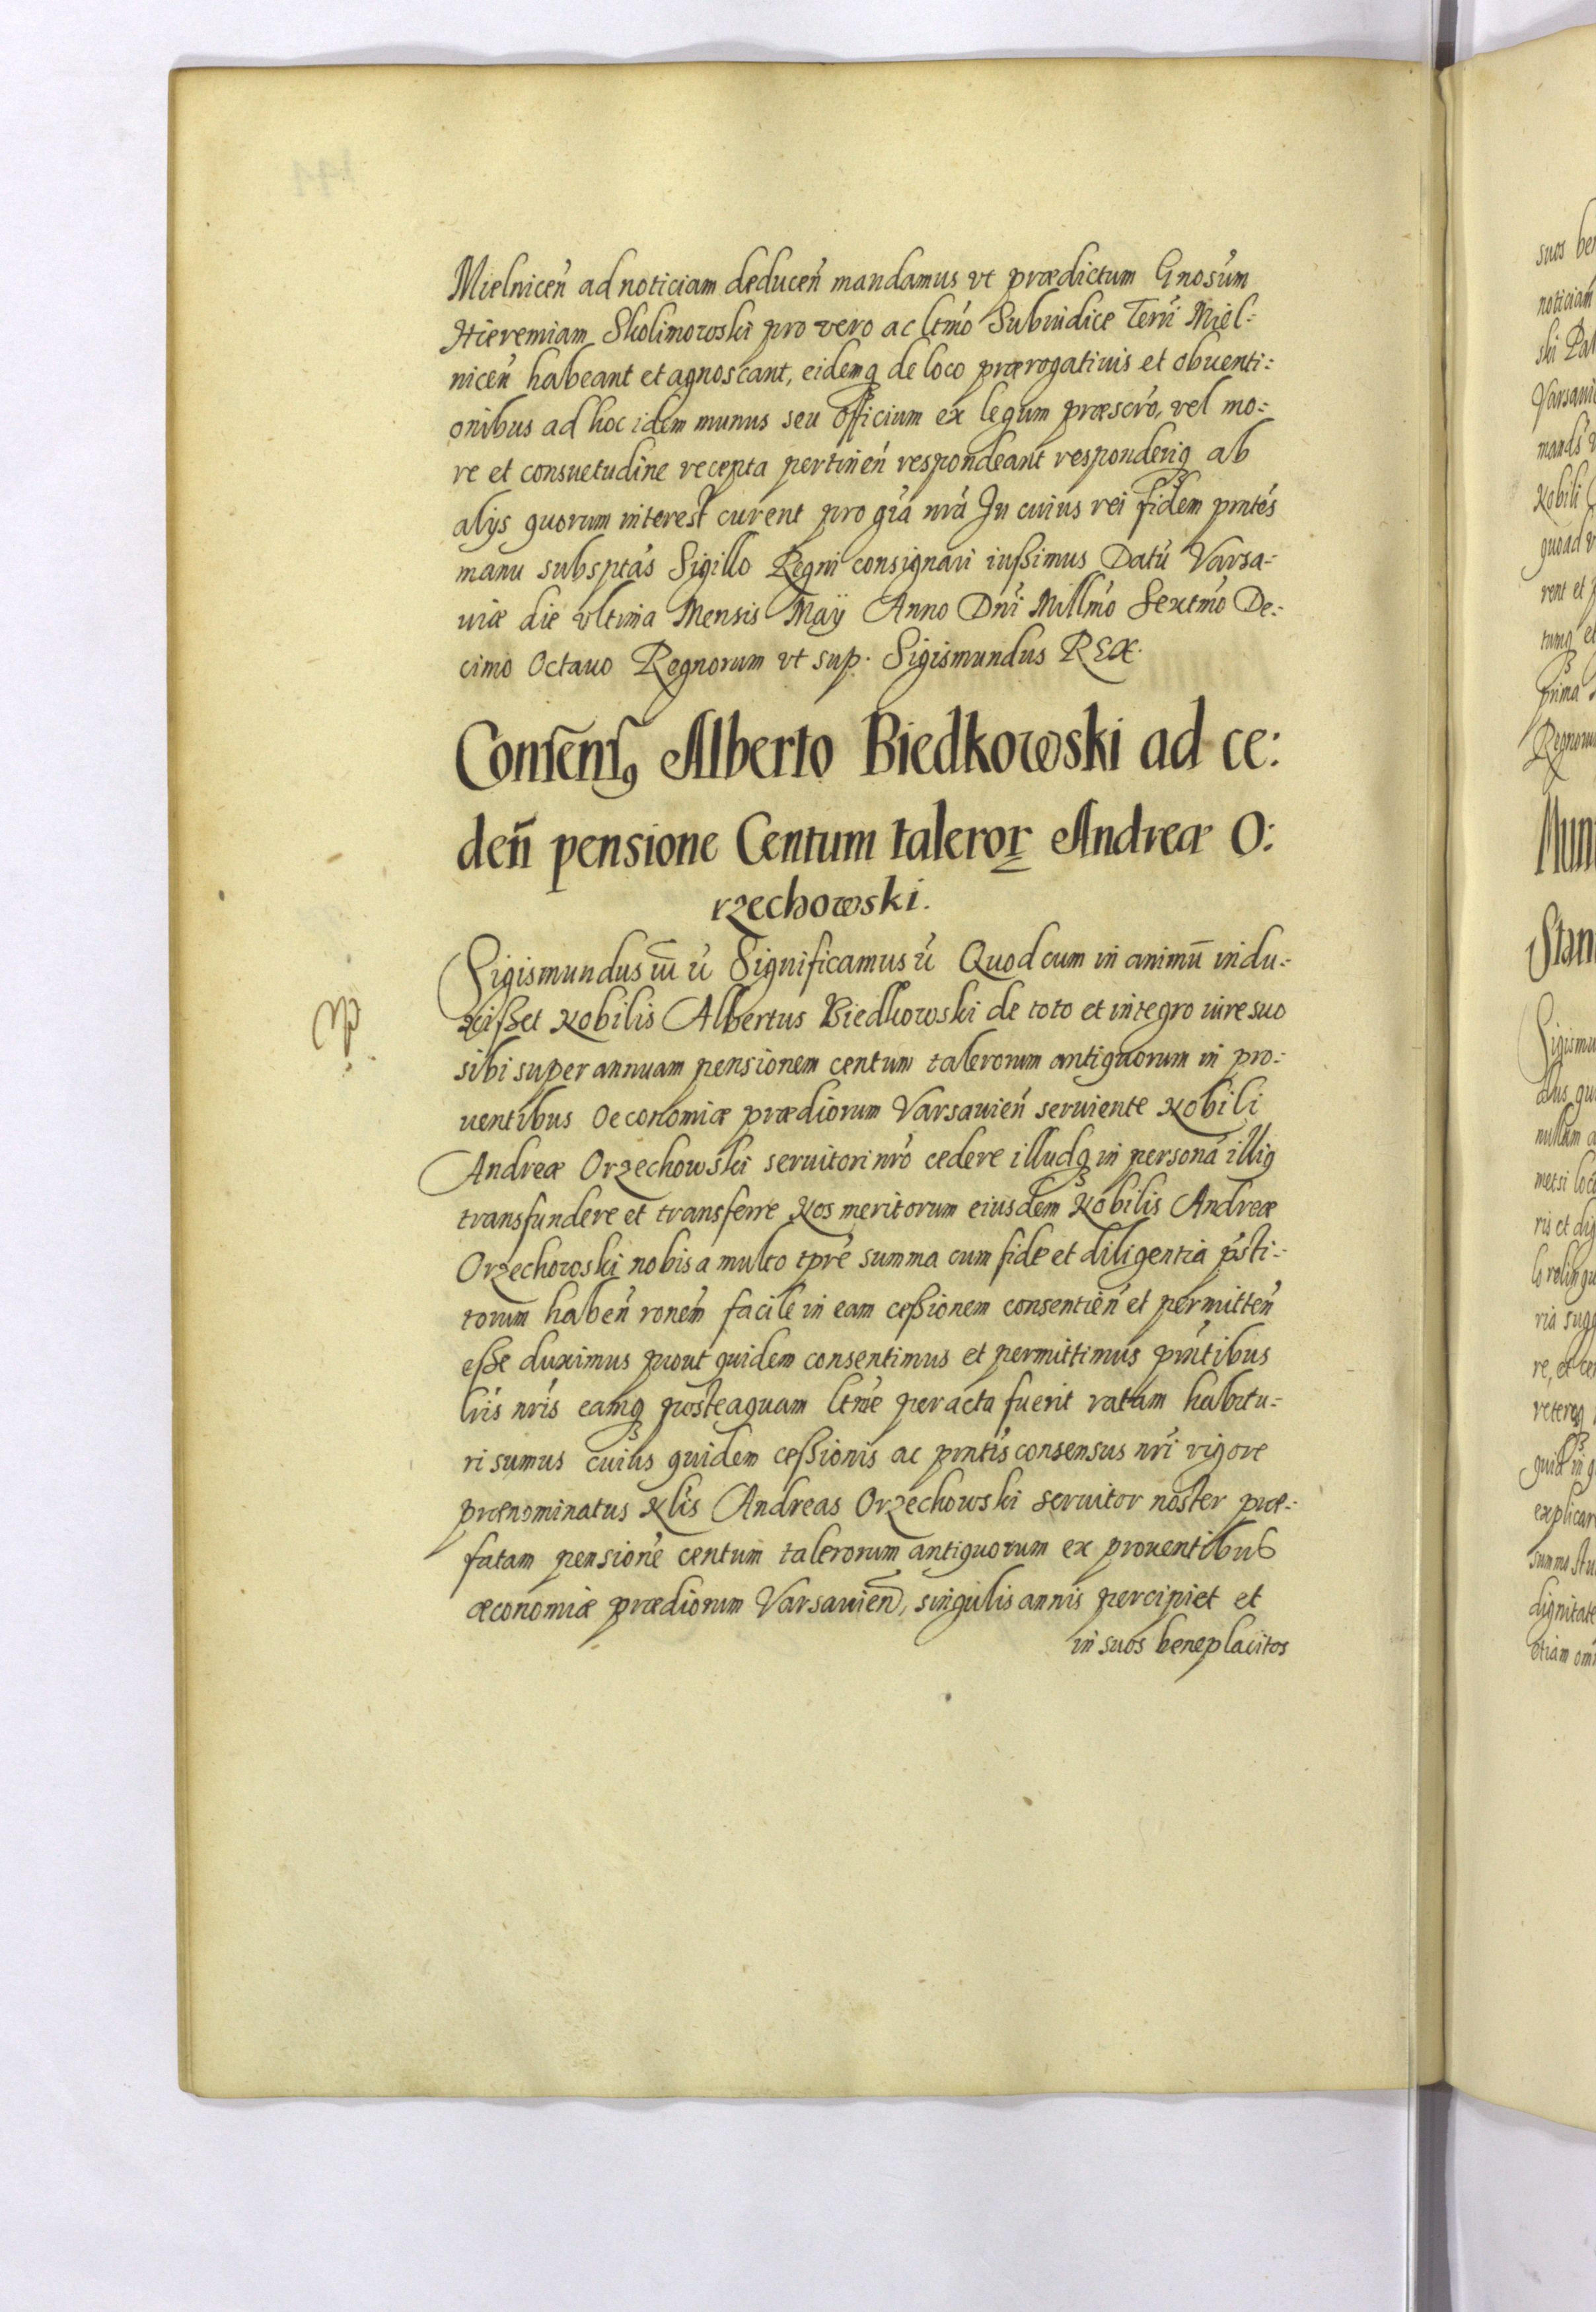 Mielnicen̄ ad noticiam deducen̄ mandamus vt prædictum Gnosum
Hieremiam Skolimowski pro vero ac ltmo Subiudice Terri Miel:
nicen̄ habeant et agnoscant, eidemq de loco prærogatiuis et obuenti:
onibus ad hoc idem munus seu officium ex legum præscro, vel mo:
re et consuetudine recepta pertinen̄ respondeant responderiq ab
alijs quorum interest curent pro gra nra In cuius rei fidem pntes
manu subsptas Sigillo Regni consignari iußimus Datū Varsa-
uiæ die vltima Mensis Maÿ Anno Dni Millmo Sextmo De:
cimo Octauo Regnorum vt sup. Sigismundus REX.
Consensꝰ Alberto Biedkowski ad ce:
den̄ pensione Centum taleroꝝ Andreæ O:
rzechowski.
Sigismundus III ū Significamus ū Quod cum in animū indu:
xißet Nobilis Albertus Biedkowski de toto et integro iure suo
sibi super annuam pensionem centum talerorum antiquorum in pro:
uentibus Oeconomiæ prædiorum Varsauien̄ seruiente Nobili
Andreæ Orzechowski seruitori nro cedere illudq in persona illiꝰ
transfundere et transferre Nos meritorum eiusdem Nobilis Andreæ
Orzechowski nobis a multo tpre summa cum fide et diligentia psti:
torum haben̄ ronem facile in eam ceßionem consentien̄ et permitten̄
eße duximus prout quidem consentimus et permittimus pntibus
lris nris eamq posteaquam ltme peracta fuerit ratam habitu:
ri sumus cuius quidem ceßionis ac pntis consensus nri vigore
prænominatus Nlis Andreas Orzechowski seruitor noster præ:
fatam pensionē centum talerorum antiquorum ex prouentibus
œconomiæ prædiorum Varsauien̄, singulis annis percipiet et
in suos beneplacitos